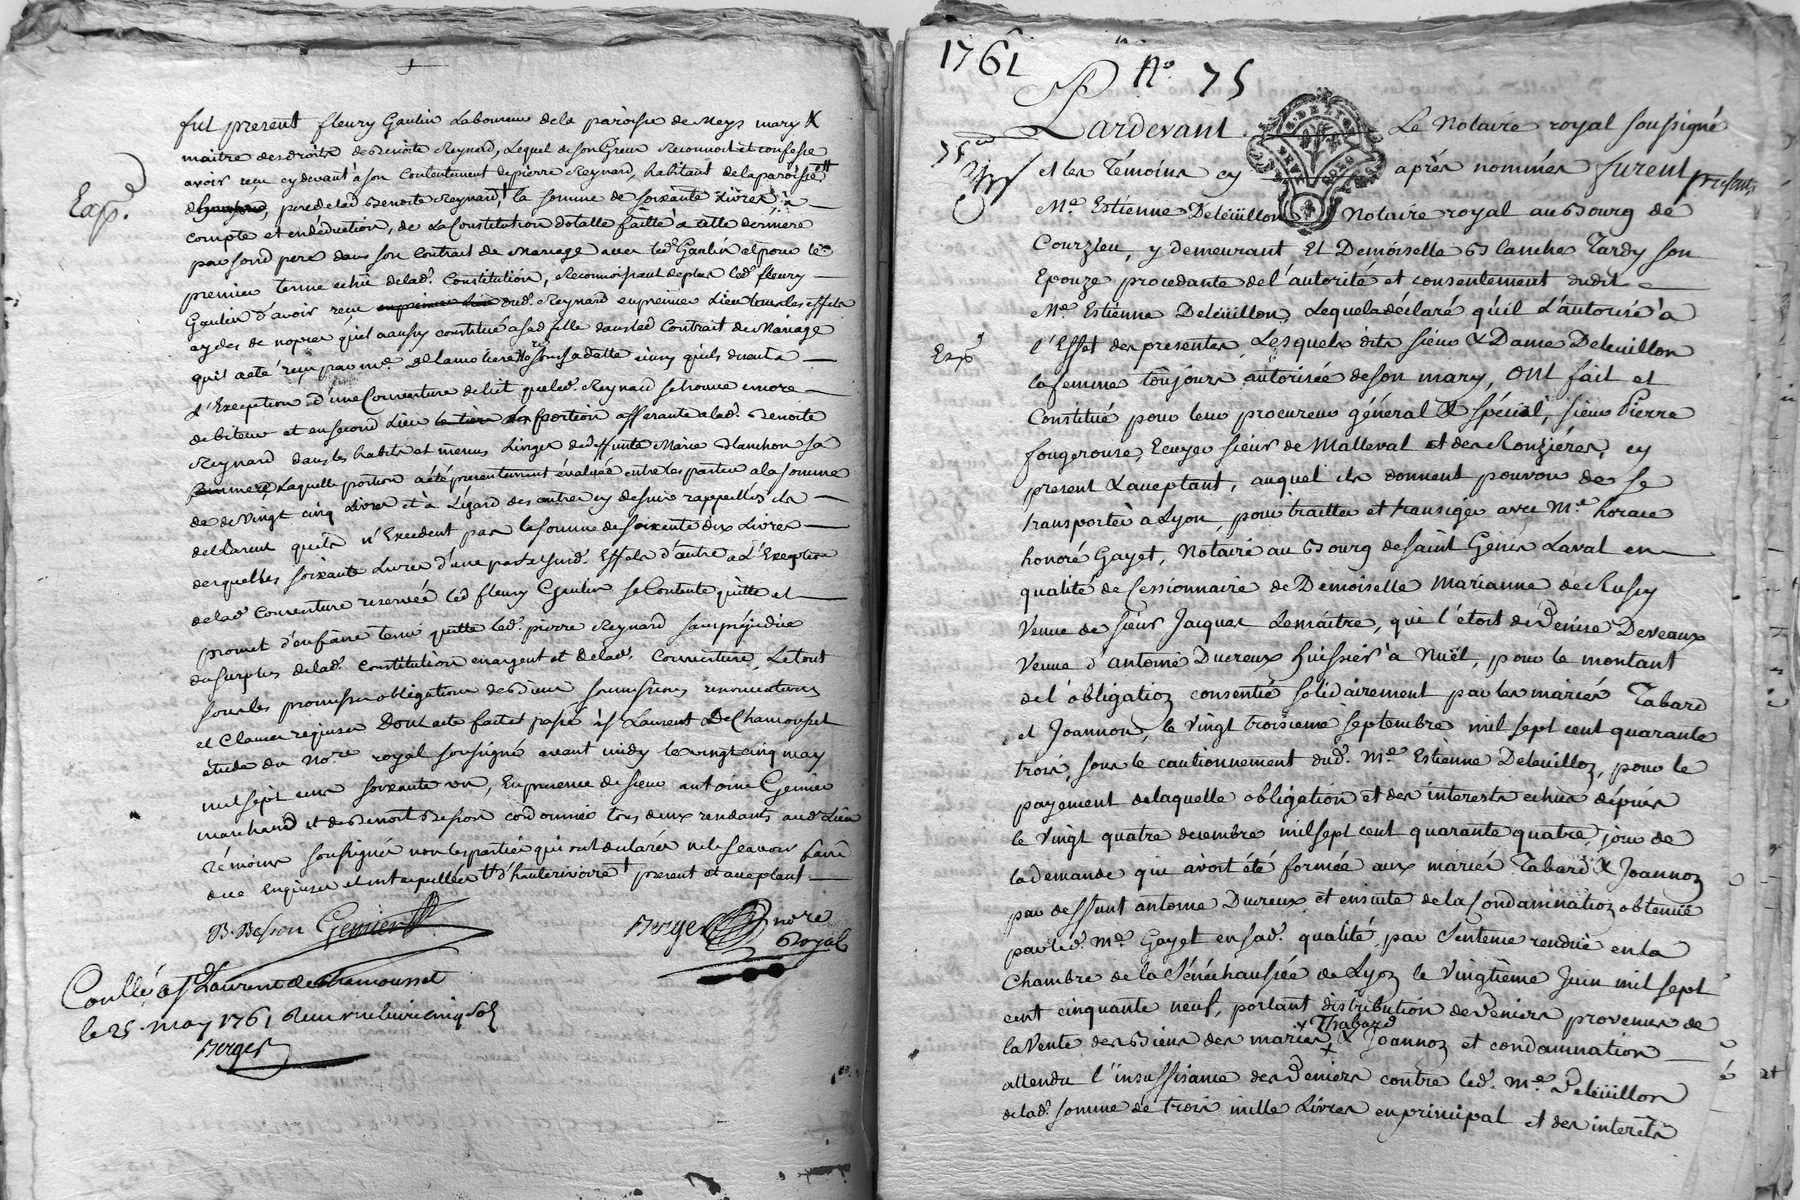 fut present fleury Gaulin Laboureur dela paroisse de Meys mary X
maitre des droits de Benoite Reynard, Lequel de son Greux Reconnoit et confesse
avoir reçu cy devant à son contentement de pierre Reynard, habitant dela paroisse #
pere de lad Benoite Reynard, la somme de soixante Livres à
compte et en déduction, de la Constitution dotalle faitte à cette derniere
par sond pere dans son contrat de Mariage avec led Gaulin et pour le
premier terme echû delad. Constitution, Reconnoissant de plus led. fleury
Gaulin d'avoir reçu dud. Reynard en premier Lieu tous les effets
qu'il a aussy constitué a sad fille dans led Contrait de Mariage
qui a eté reçu par me.
L'Exeption d'une Couverture de lit que led. Reynard se trouve encore
debiteur et en second Lieu portion afferante a lad. Benoite
Reynard dans les habits et menus Linges de deffunte Marie Blanchon sa
laquelle portion a été presentement évaluée entre les parties a la somme
de vingt cinq Livres et à L'égard des autres cy dessus rappellés ils
declarent qu'ils n'Excedent pas la somme de soixante dix Livres
desquelles soixante Livres d'une part et susd. Effets d'autre a L'Exeption
delad Couverture reservée led fleury Gaulin se Contente quitte et
promet d'en faire tenir quitte led. pierre Reynard sans préjudice
du surplus delad. Constitution en argent et delad. Couverture, Le tout
sous les promesses obligations de Biens soumissions renonciations
et Clauses requises Dont acte fait et passé à St Laurent De Chamousset
étude du No.re royal soussigné avant midy le vingt cinq may
mil sept cens soixante un, En presence de sieur antoine Genier
marchand et de Benoit Besson cordonnier tous deux residants aud. Lieu
témoins soussignés non les parties qui ont declarés ne le sçavoir faire
de ce Enquises et interpellées # d'hauterivoire present et aceptant
Exp.
B. Besson Genier
Berger nore Royal
Conllé à St Laurent de Chamousset
le 25. may 1761
Berger
1761 No. 75
Pardevant Le Notaire royal soussigné
et les témoins cy après nommés furent presents
Me. Estienne Deleüillon Notaire royal au Bourg de
Courzieu, y demeurant Et Demoiselle Blanche Tardy son
Epouze procedante de l'autorité et consentement dudit
Me. Estienne Deleüillon, Lequel a déclaré qu'il L'autorise à
Exp.
l'Effet des presentes Lesquels dits sieur & Dame Deleuillon
la femme toûjours autorisée de son mary, ont fait et
Constitué pour leur procureur général & spécial, sieur Pierre
fougerouse, Ecuyer sieur de Malleval et des Ronzières, cy
present & aceptant, auquel ils donnent pouvoir de se
transporter a Lyon, pour traitter et transiger avec Me. horace
honoré Gayet, Notaire au Bourg de saint Genis Laval en
qualité de Cessionnaire de Demoiselle Marianne de Rusey
Veuve de sieur Jacques Lemaitre, qui l'étoit de Denise Deveaux
Veuve d'antoine Ducreux huissier à Nuël, pour le montant
de l'obligation consentie solidairement par les mariés Tabard
et Joannon, le vingt troisieme septembre mil sept cent quarante
trois, sous le cautionnement dud. Me. Estienne Deleuillon, pour le
payement delaquelle obligation et des interests echus dépuis
le vingt quatre decembre mil sept cent quarante quatre, jour de
la demande qui avoit été formée aux mariés Tabard & Joannon
par deffunt antoine Ducreux et ensuite de la Condamination obtenue
par led. Me. Gayet en sad. qualité, par Sentence rendue en la
Chambre de la Sénéchaussée de Lyon le vingtième Juin mil sept
cent cinquante neuf, portant distribution de Deniers provenus de
la Vente des Biens des mariés x Thabard & Joannon et condamnation
attendu l'insuffisance des Deniers contre led. Me. Deleüillon
delad. somme de trois mille Livres en principal et des interêts